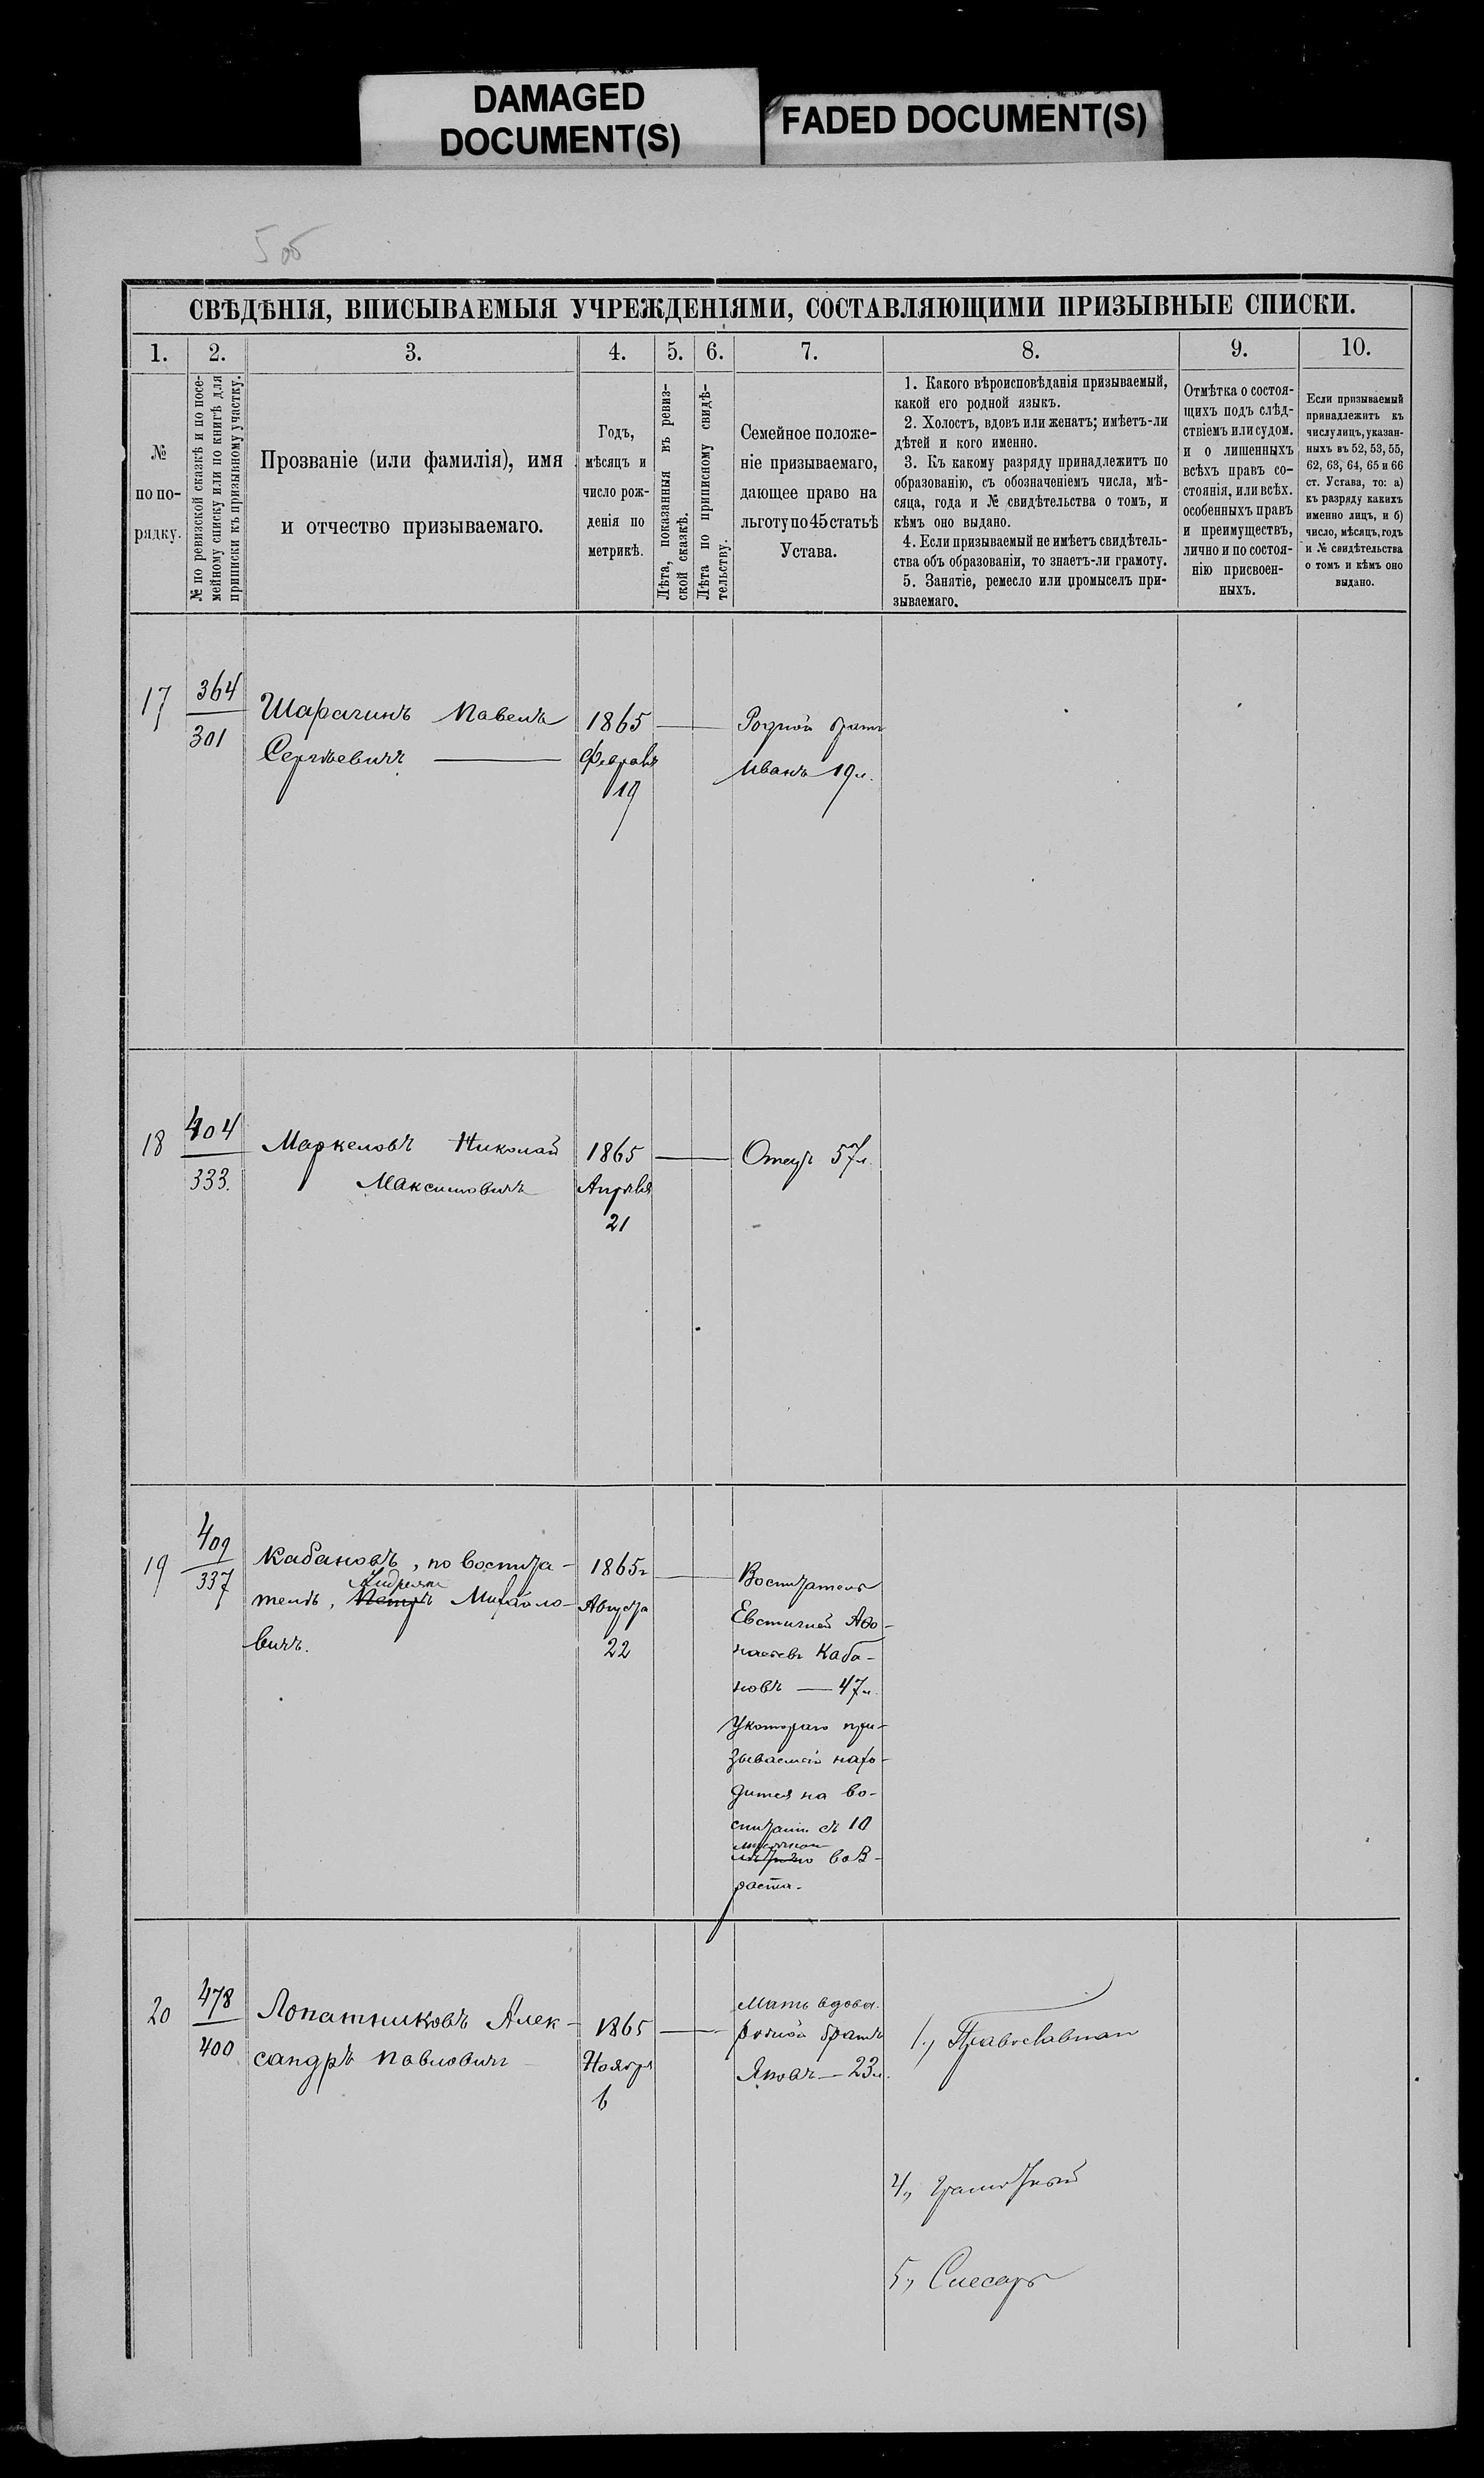 DAMAGED
DOCUMENT(S)
FADED DOCUMENT(S)
5об
СВѢДѢНІЯ, ВПИСЫВАЕМЫЯ УЧРЕЖДЕНІЯМИ, СОСТАВЛЯЮЩИМИ ПРИЗЫВНЫЕ СПИСКИ.
1.
2.
3.
4.
5.
6.
7.
8.
9.
10.
№
по по-
рядку.
№ по ревизской сказкѣ и по посе-
мейному списку или по книгѣ для
приписки къ призывному участку.
Прозваніе (или фамилія), имя
и отчество призываемаго.
Годъ,
мѣсяцъ и
число рож-
денія по
метрикѣ.
Лѣта, показанныя въ ревиз-
ской сказкѣ.
Лѣта по приписному свидѣ-
тельству.
Семейное положе-
ніе призываемаго,
дающее право на
льготу по 45 статьѣ
Устава.
1. Какого вѣроисповѣданія призываемый,
какой его родной языкъ.
2. Холостъ, вдовъ или женатъ; имѣетъ-ли
дѣтей и кого именно.
3. Къ какому разряду принадлежитъ по
образованію, съ обозначеніемъ числа, мѣ-
сяца, года и № свидѣтельства о томъ, и
кѣмъ оно выдано.
4. Если призываемый не имѣетъ свидѣтель-
ства объ образованіи, то знаетъ-ли грамоту.
5. Занятіе, ремесло или промыселъ при-
зываемаго.
Отмѣтка о состоя-
щихъ подъ слѣд-
ствіемъ или судом.
и о лишенныхъ
всѣхъ правъ со-
стоянія, или всѣх.
особенныхъ правъ
и преимуществъ,
лично и по состоя-
нію присвоен-
ныхъ.
Если призываемый
принадлежитъ къ
числу лицъ, указан-
ныхъ въ 52, 53, 55,
62, 63, 64, 65 и 66
ст. Устава, то: а)
къ разряду какихъ
именно лицъ, и б)
число, мѣсяцъ, годъ
и № свидѣтельства
о томъ и кѣмъ оно
выдано.
17
364
301
Шарагинъ Павелъ
Сергѣевичъ
1865
Февраля
19
Родной братъ
Иванъ 19 л.
18
404
333.
Маркеловъ Николай
Максимовичъ
1865
Апрѣля
21
Отецъ 57 л.
19
409
337
Кабановъ, по воспита-
Андреянъ
телю, Петръ Михайло-
вичъ.
1865 г
Августа
22
Воспитатель
Евстигней Афо-
насьевъ Каба-
новъ — 47 л.
у котораго при-
зываемый нахо-
дится на во-
спитан. съ 10
мѣсячнаго
воз-
раста.
20
478
400
Лопатниковъ Алек-
сандръ Павловичъ
1865
Ноября
6
Мать вдова.
родной братъ
Яковъ — 23 л.
1., Православнаго
4., Грамотный
5., Слесарь